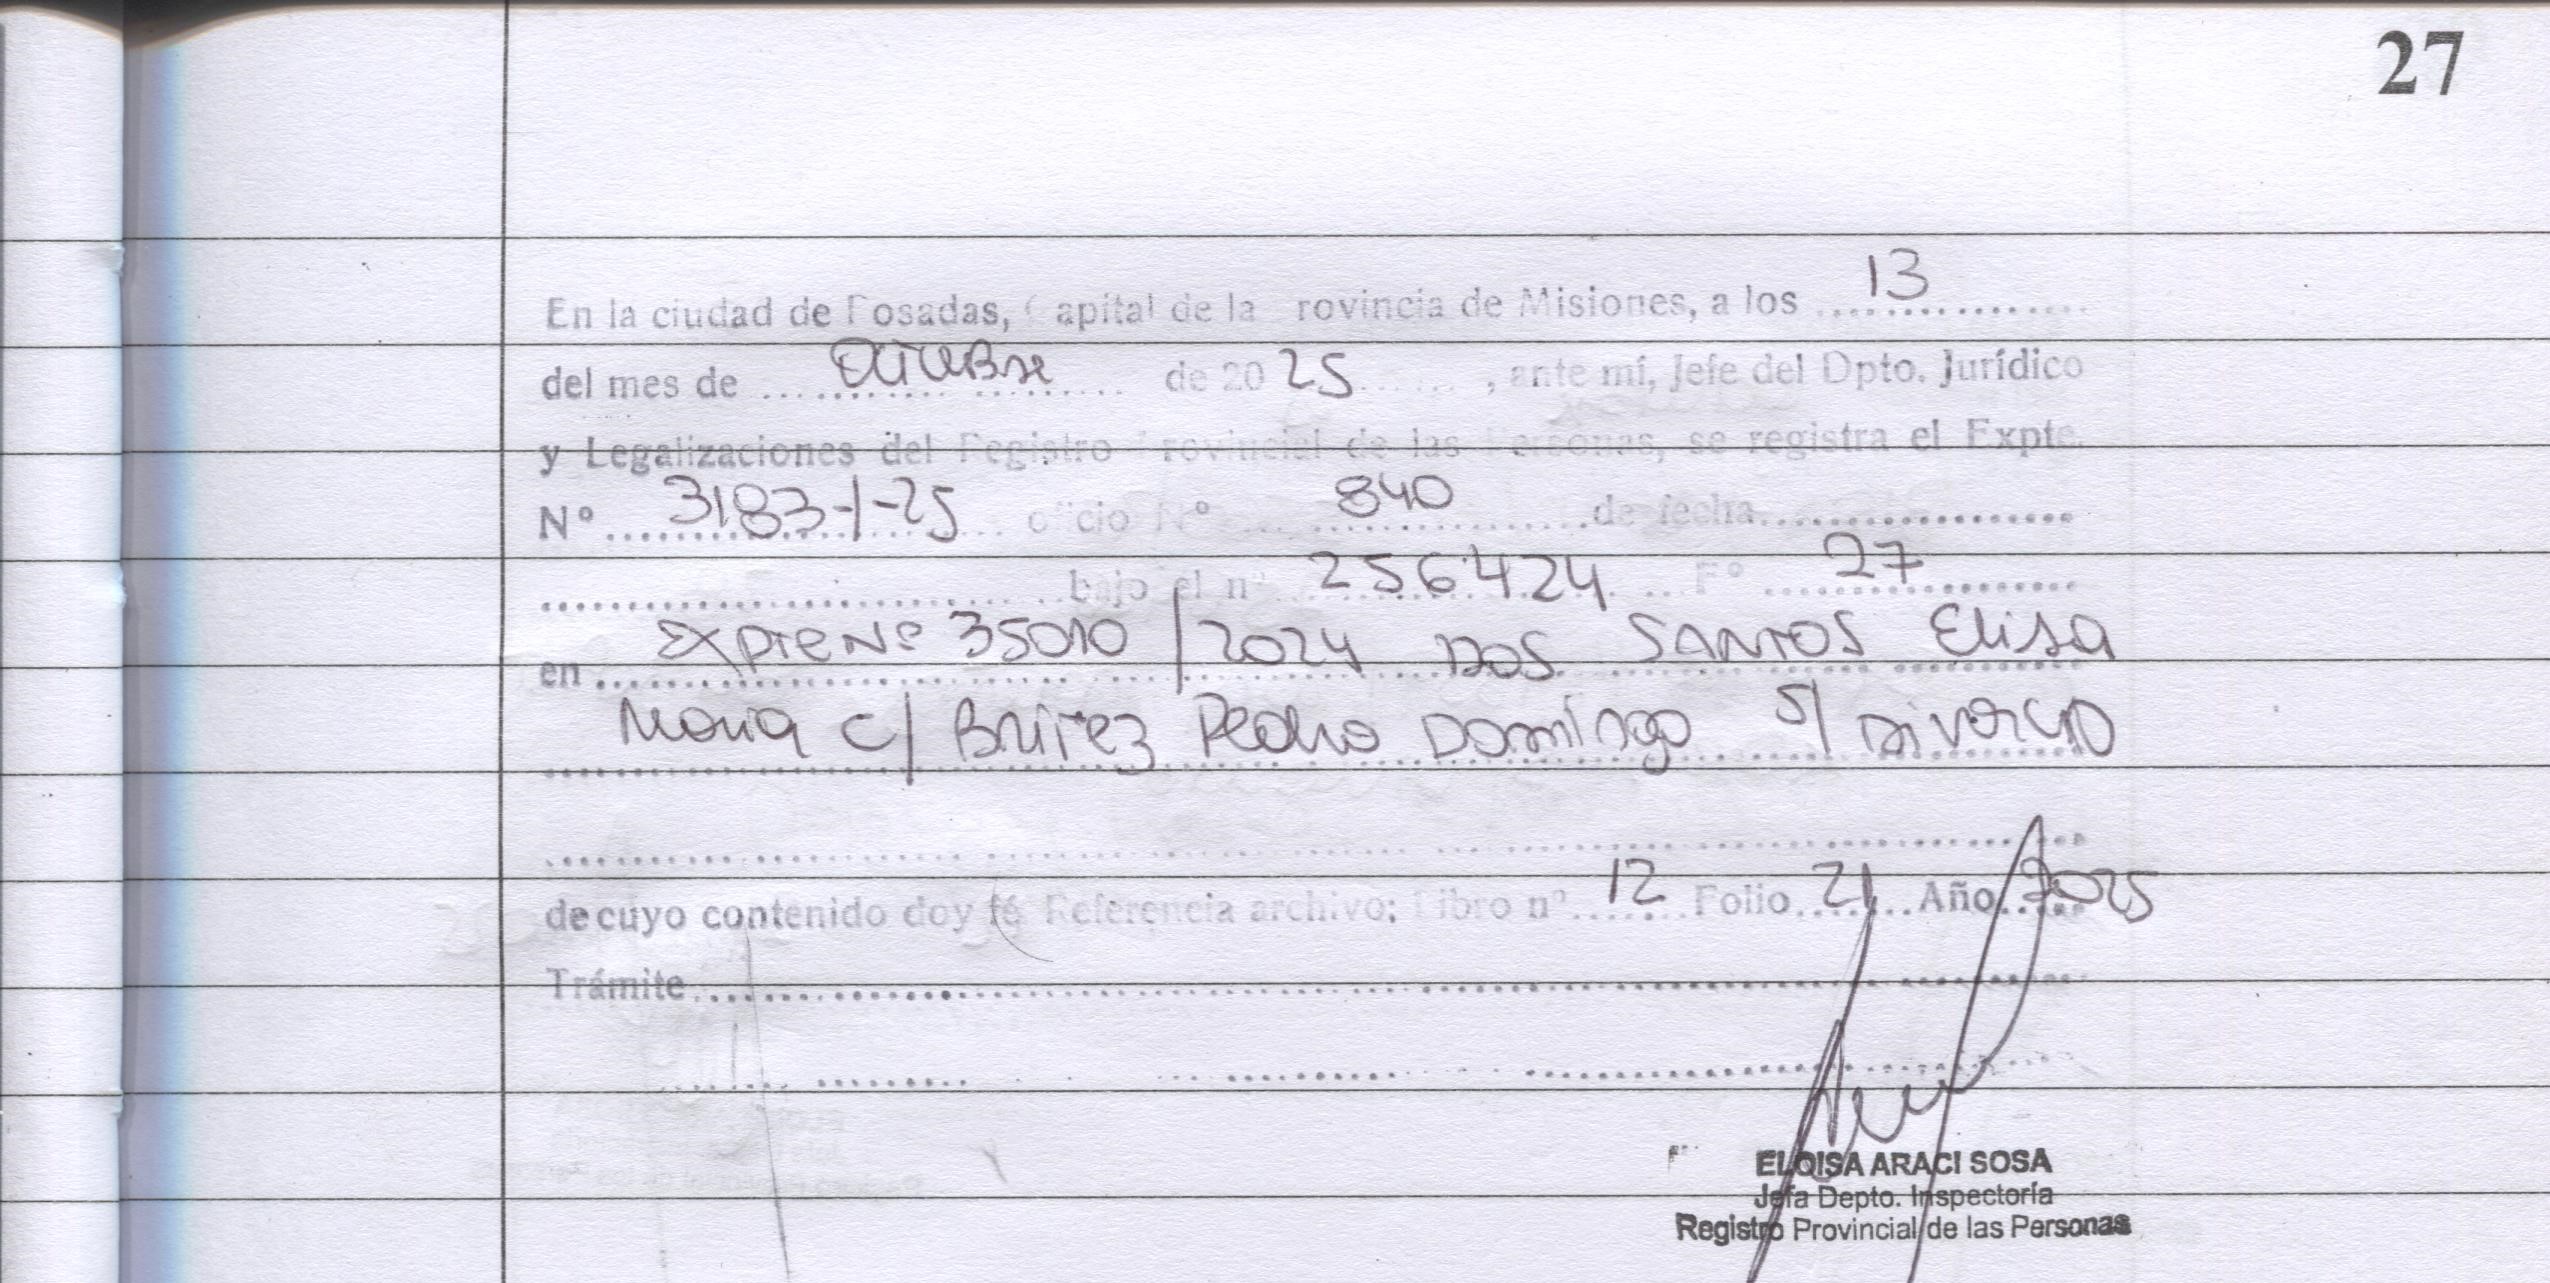 27
En la ciudad de Posadas, Capital de la Provincia de Misiones, a los 13
del mes de Octubre de 20 25 , ante mí, Jefe del Dpto. Jurídico
y Legalizaciones del Registro Provincial de las Personas, se registra el Expte.
Nº 3183-I-25 oficio Nº 840 de fecha
bajo el nº 256424 Fº 27
en Expte Nº 35010/2024 DOS SANTOS Elisa
Maria c/ Britez Pedro Domingo s/ Divorcio
de cuyo contenido doy fé Referencia archivo: Libro nº 12 Folio 21 Año 2025
Trámite
ELOISA ARACI SOSA
Jefa Depto. Inspectoría
Registro Provincial de las Personas